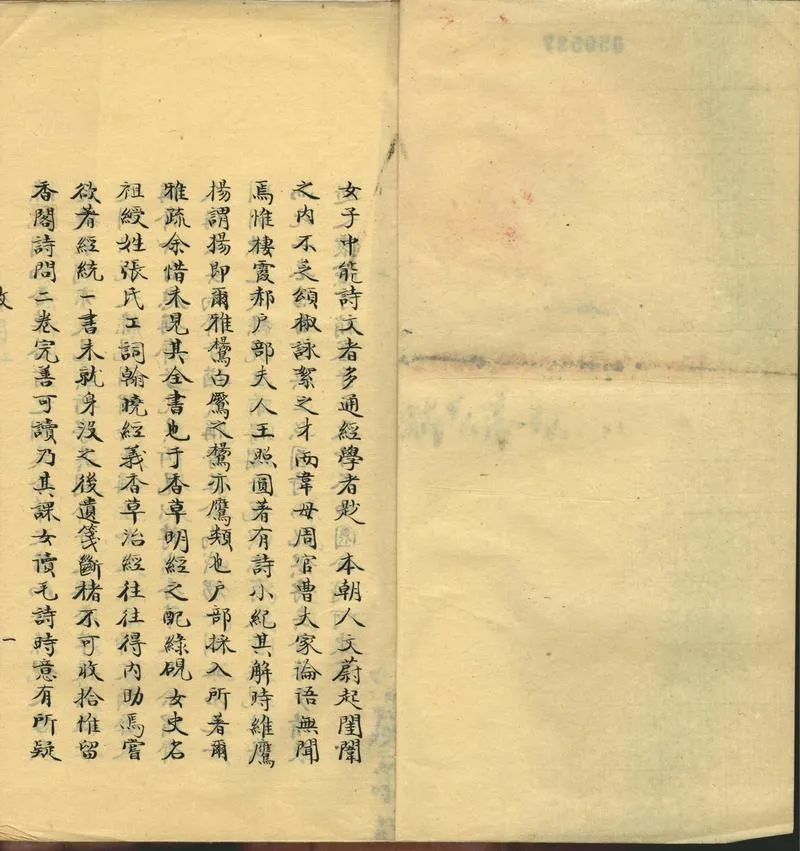 女子中能詩文者多通經學者尠本朝人文蔚起閨闈
之内不乏頌椒詠絮之才而韋母周官曹大家論语無聞
焉惟棲霞郝户部夫人王照圓著有詩小紀其解時維鷹
揚謂揚即爾雅鸉白鷢之鸉亦鷹類也户部採入所著爾
雅疏余惜未見其全書也于香草明經之配綠硯女史名
祖綬姓張氏工詞翰曉經義香草治經往往得内助焉嘗
欲著經統一書未就身没之後遺箋斷楮不可收拾惟留
香閣詩問二卷完善可讀乃其課女讀毛詩時意有所疑
一